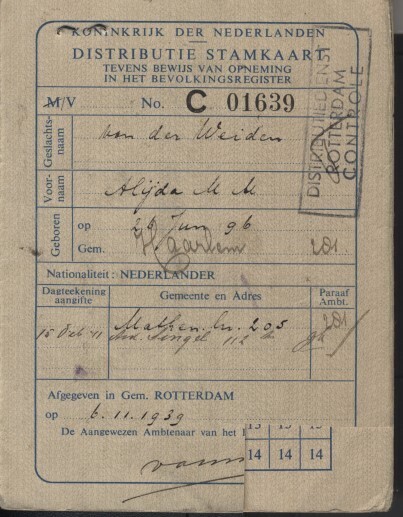 KONINKRIJK DER NEDERLANDEN
DISTRIBUTIE STAMKAART
TEVENS BEWIJS VAN OPNEMING
IN HET BEVOLKINGSREGISTER
M/V No. C 01639
DISTRIBUTIEDIENST
ROTTERDAM
CONTROLE
Geslachts-
naam
van der Weiden
Voor-
naam
Alijda M M
Geboren
op 26 Jun 96
Gem. Haarlem 281.
Nationaliteit: NEDERLANDER
Dagteekening
aangifte
Gemeente en Adres
Paraaf
Ambt.
Mathen. 205 281
15 Singel 112
Afgegeven in Gem. ROTTERDAM
op 6.11.1939
De Aangewezen Ambtenaar van het
14 14 14